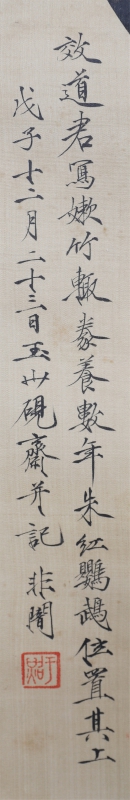 效道君寫嫩竹輒豢養數年朱紅鸚鵡位置其上
戊子十二月二十三日玉山硯齋并記 非闇